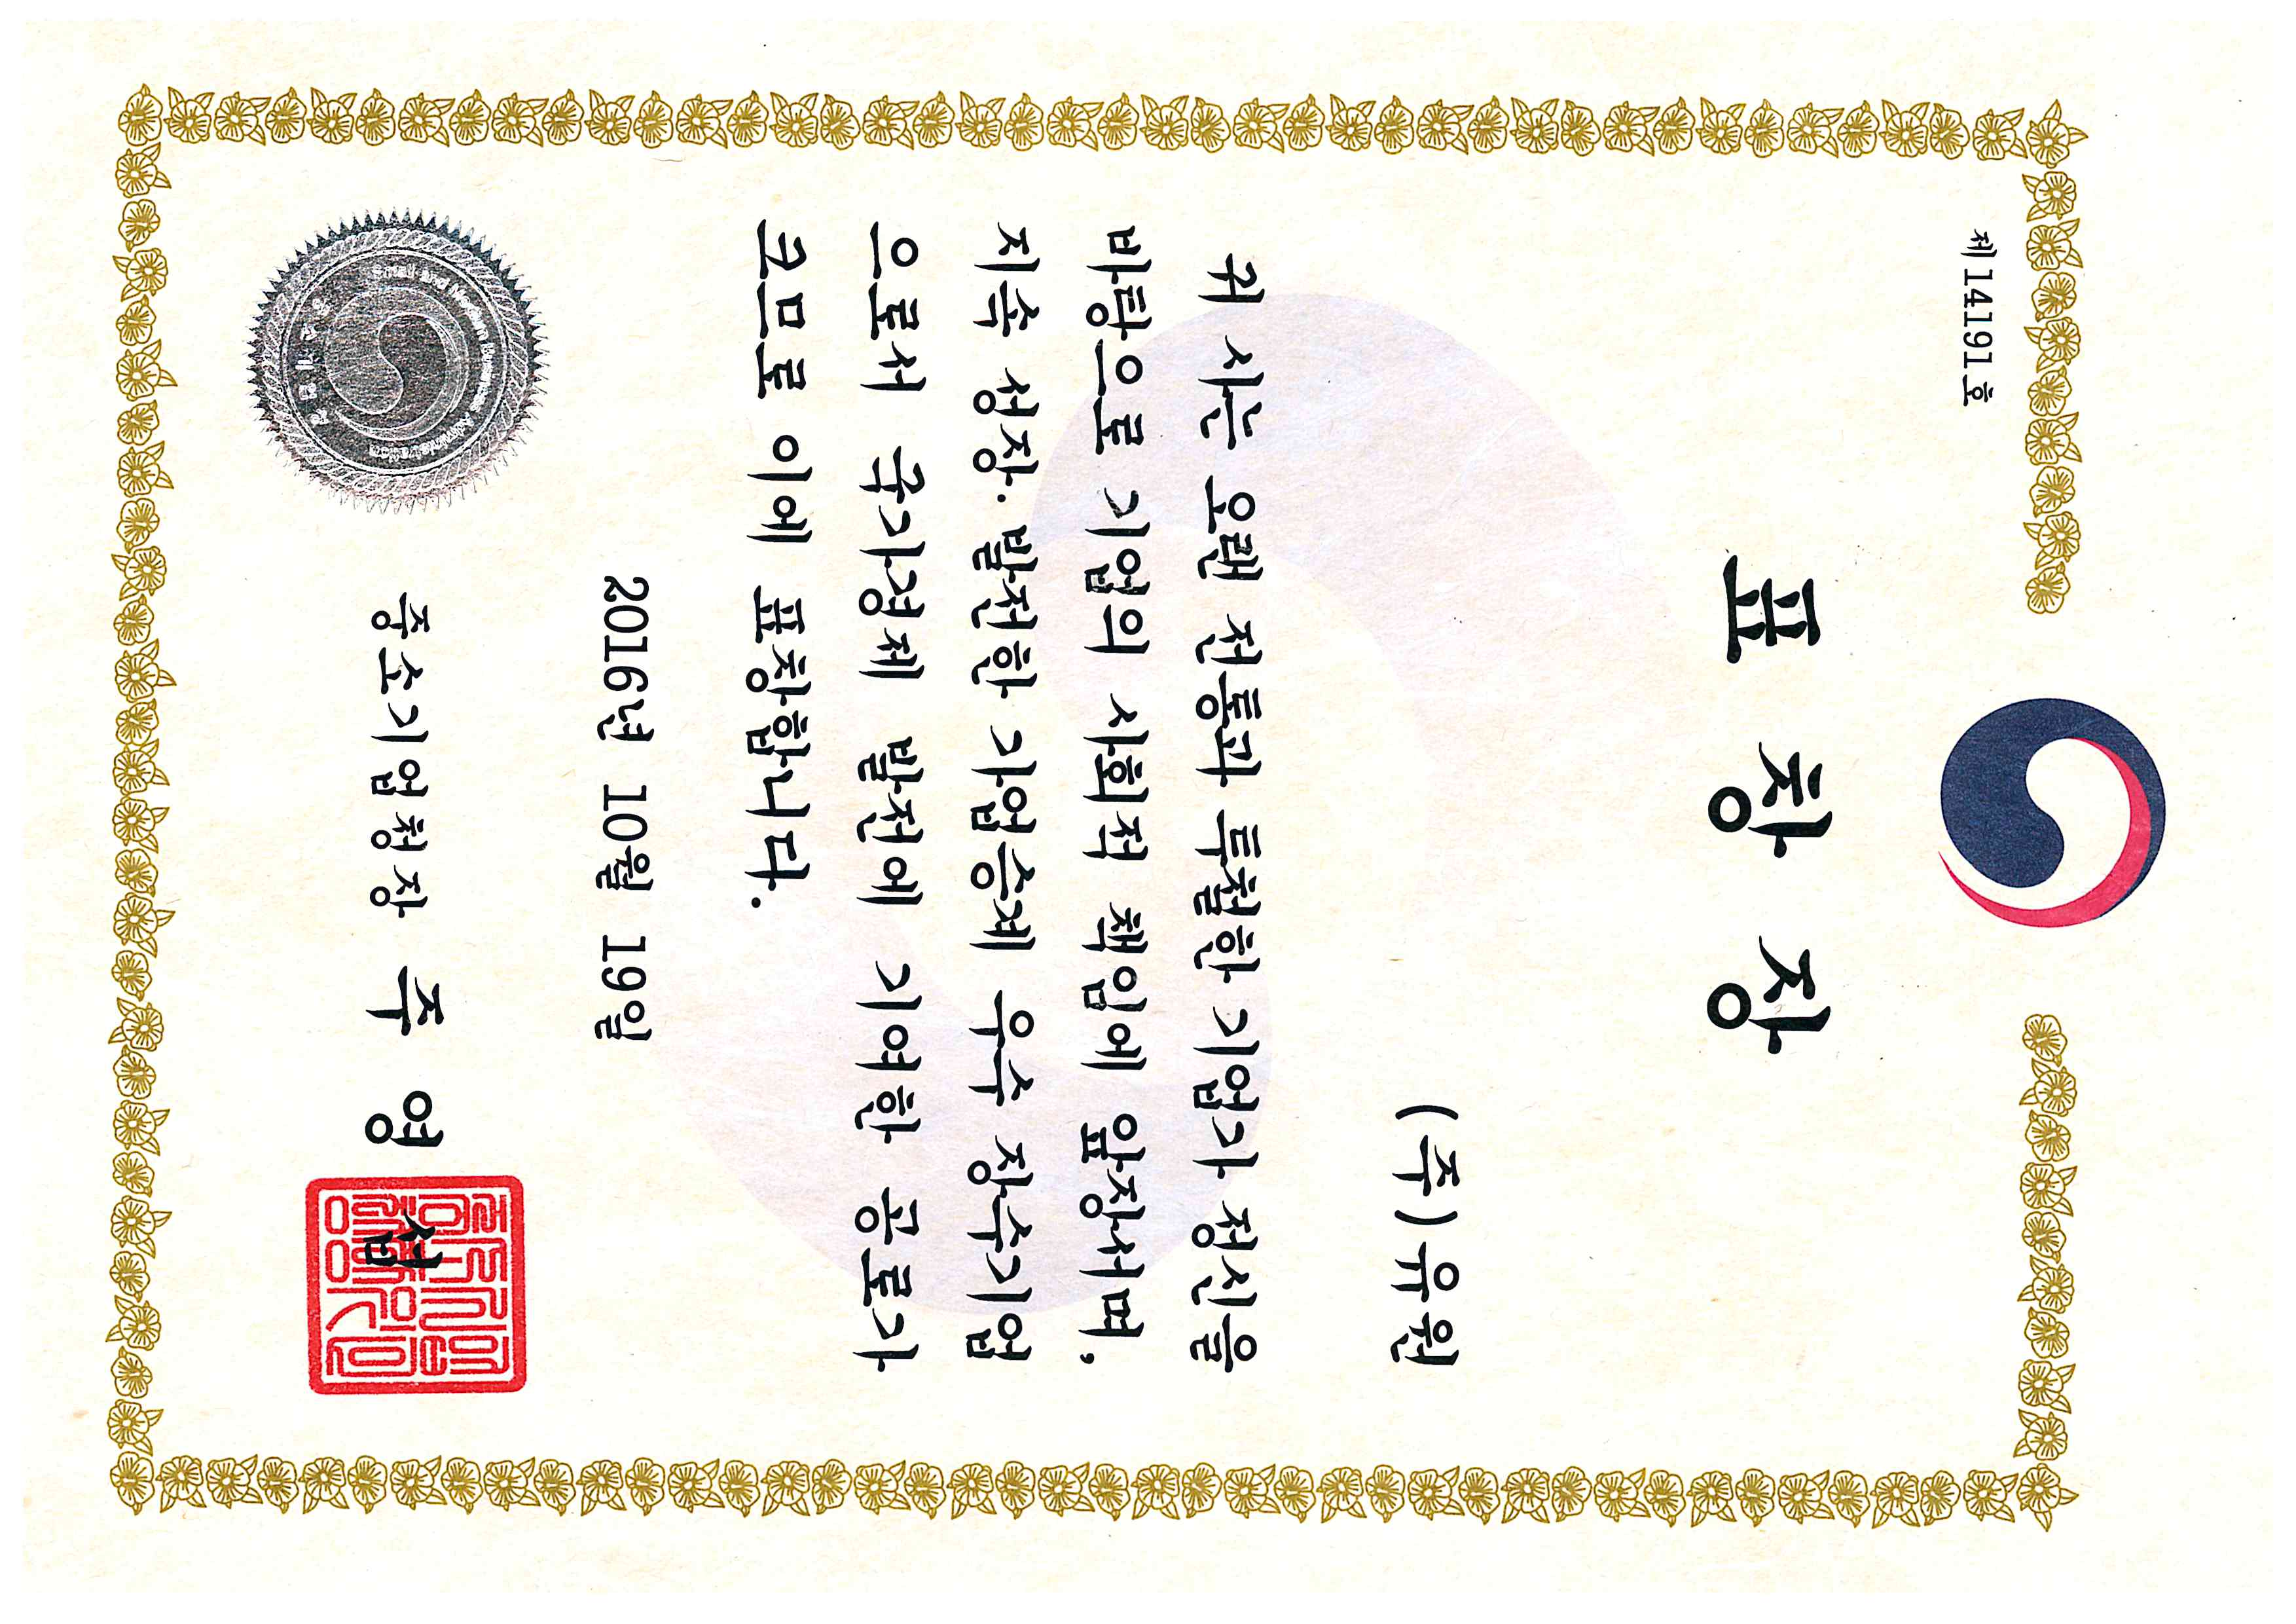 제14191호
표 창 장
(주)유원
귀 사는 오랜 전통과 투철한 기업가 정신을
바탕으로 기업의 사회적 책임에 앞장서며,
지속 성장·발전한 가업승계 우수 장수기업
으로서 국가경제 발전에 기여한 공로가
크므로 이에 표창합니다.
2016년 10월 19일
중소기업청장 주 영 섭